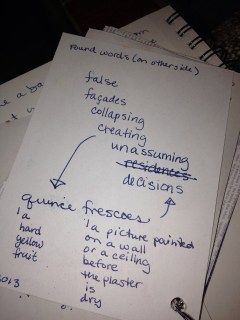 Found words (on otherside)
false
façades
collapsing
creating
unassuming
residences
decisions
quince frescoes
↓a
hard
yellow
fruit
↓a picture painted
on a wall
or a ceiling
before
the plaster
is
dry
2013